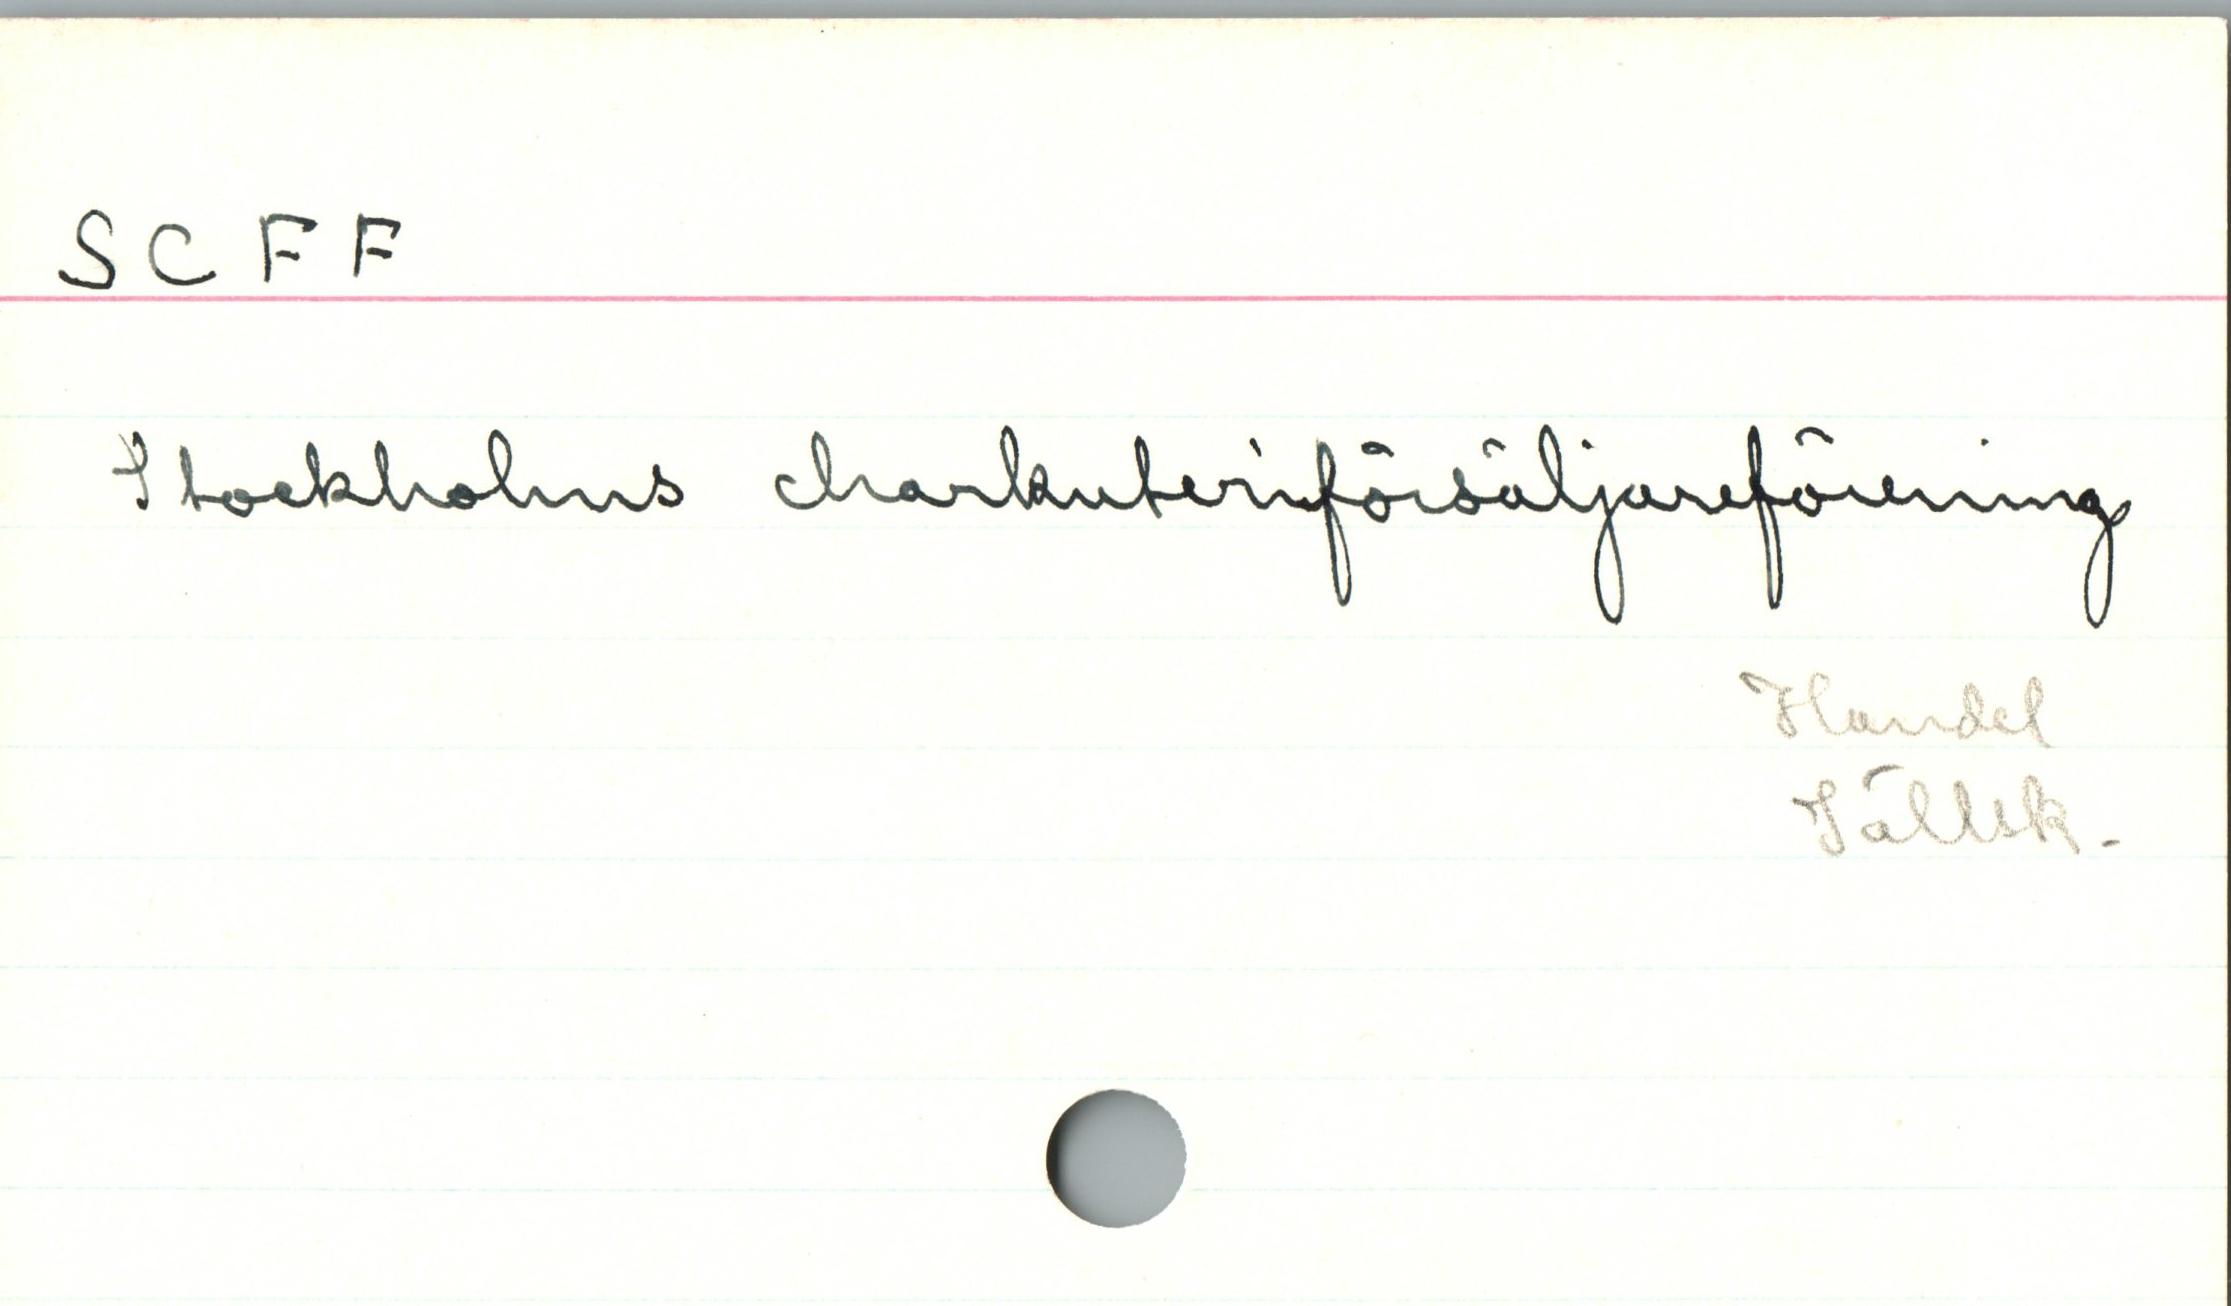 SCFF
Stockholms charkuteriförsäljareförening
Handel
Sällsk.